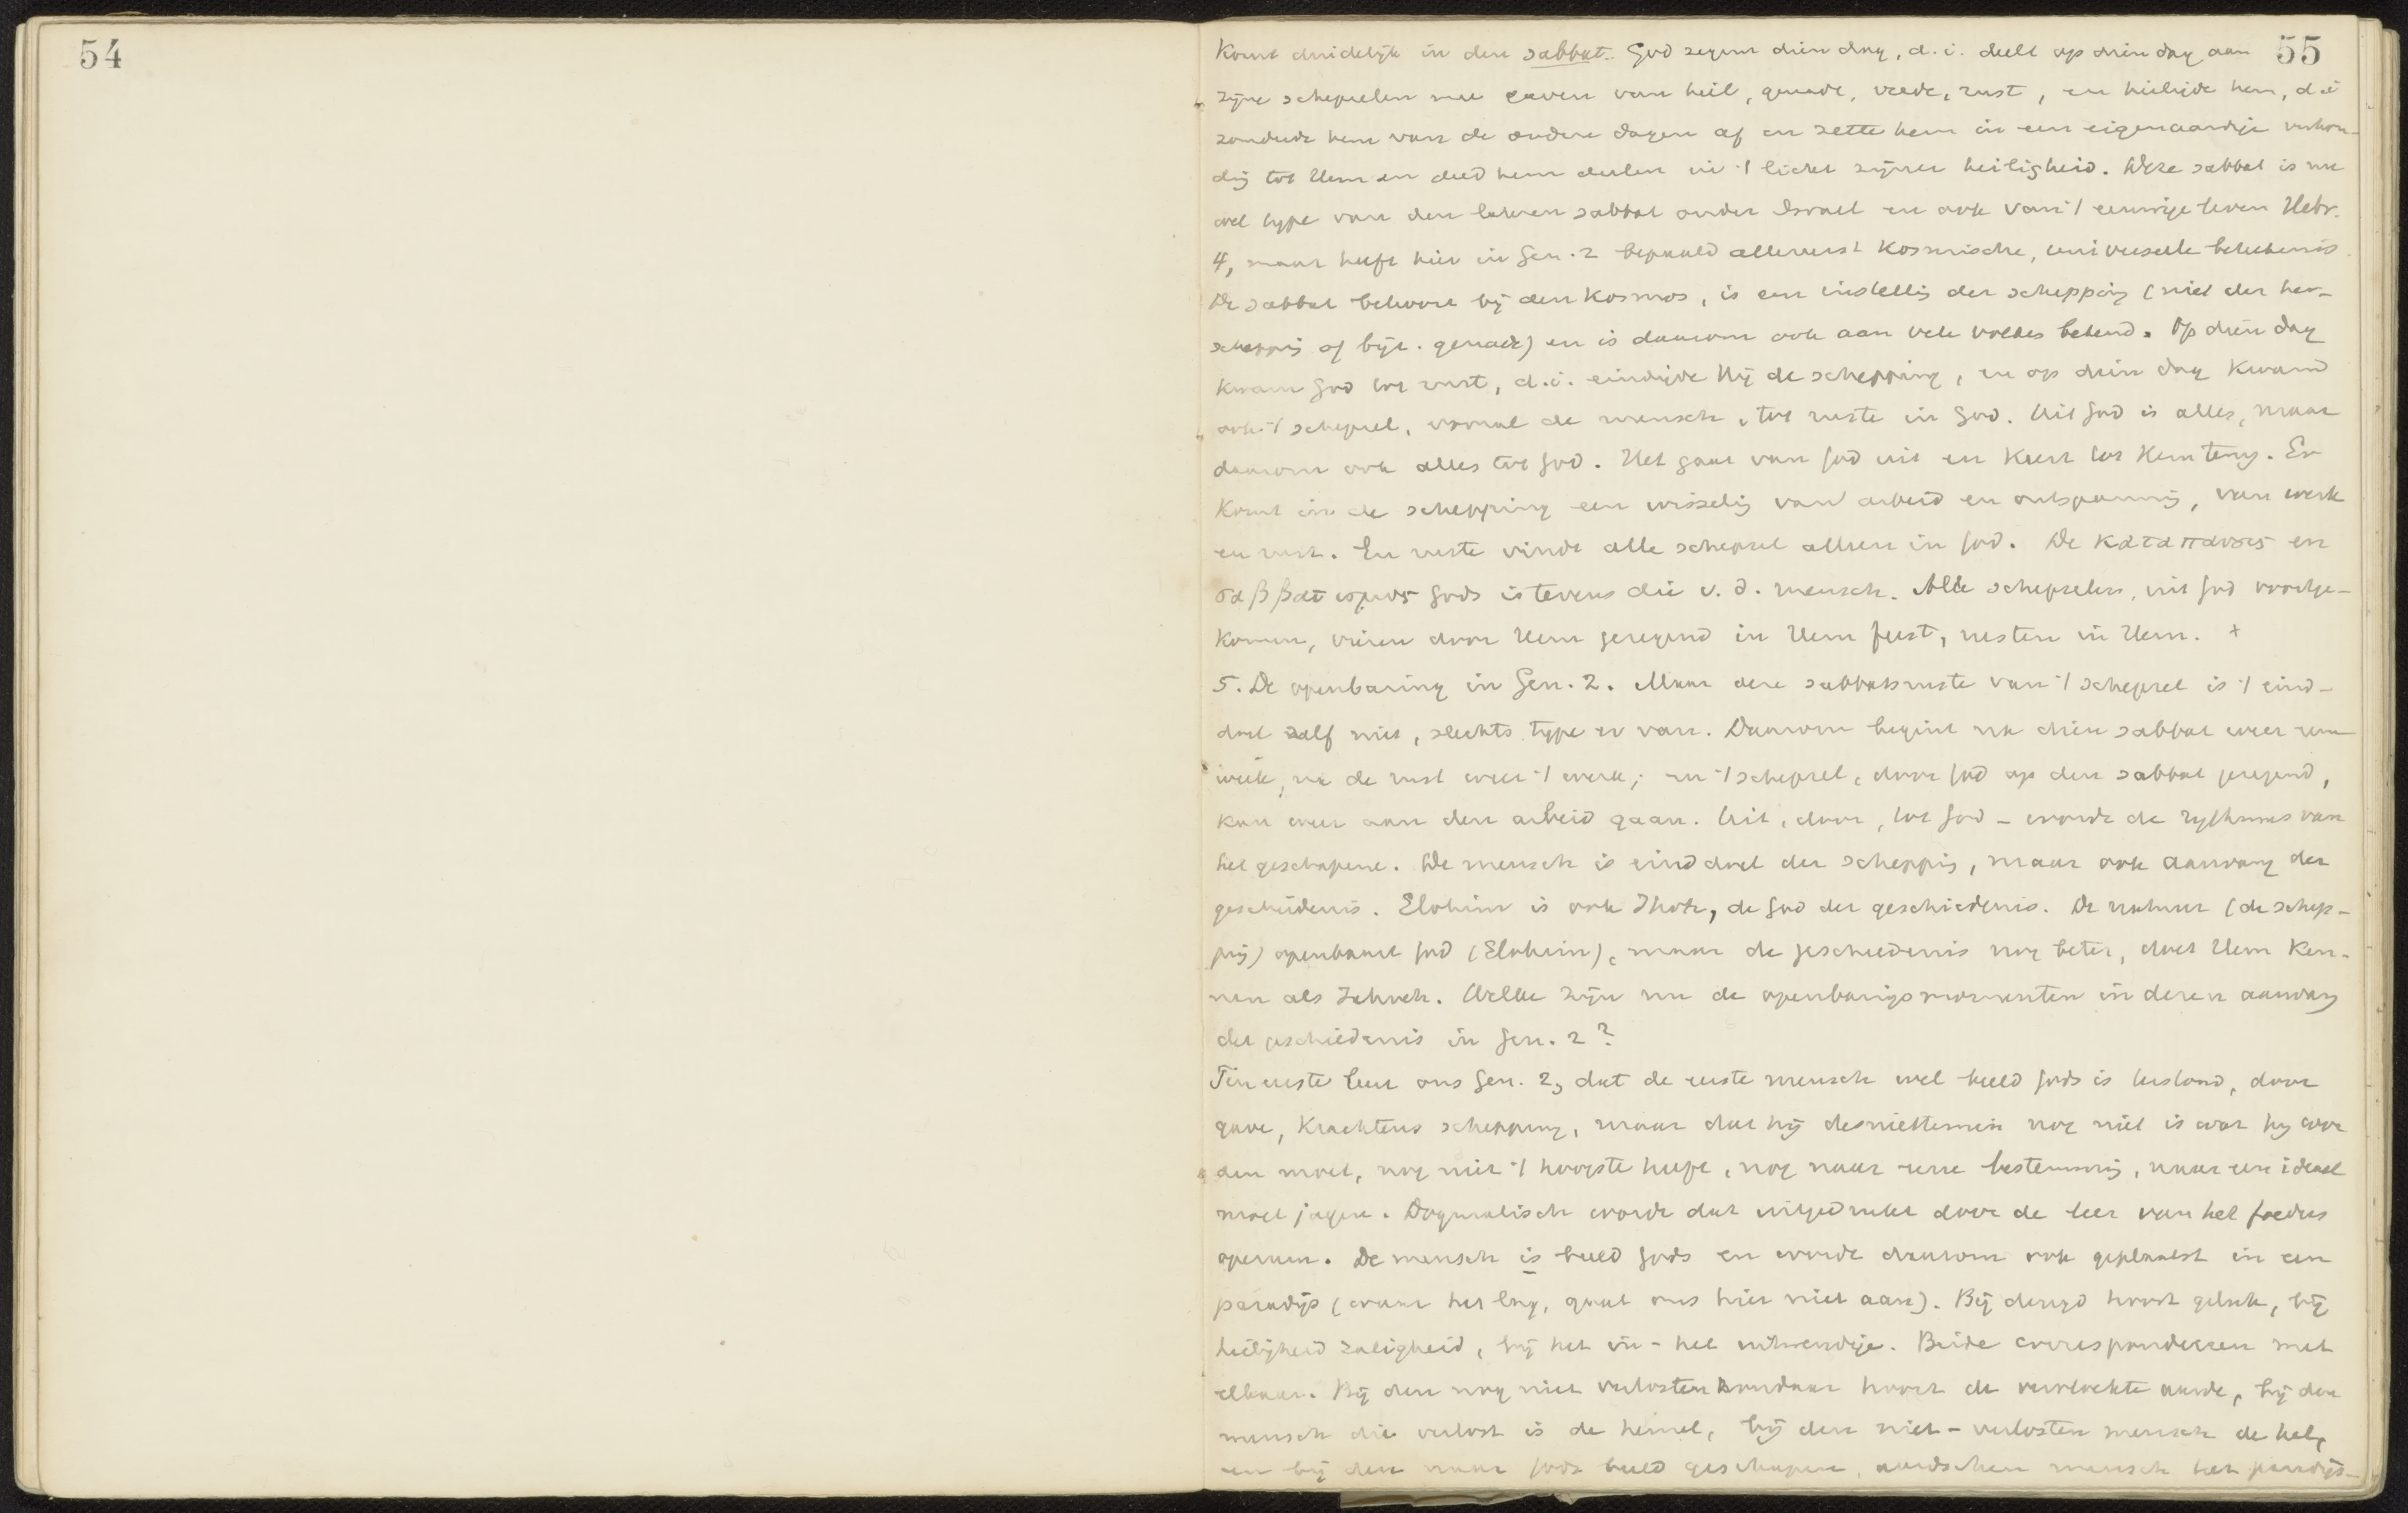 54
55
Komt duidelijk in den sabbat. God zegent dien dag, d.i. deelt op dien dag aan
zijne schepselen mee gaven van heil, genade, vrede, rust, en heiligde hem, d.i
zonderde hem van de andere dagen af en zette hem in een eigenaardige verhou-
dig tot Hem en deed hem deelen in 't licht zijner heiligheid. Deze sabbat is nu
wel type van den lateren sabbat onder Israel en ook van 't eeuwige leven Hebr.
4, maar heeft hier in Gen. 2 bepaald allereerst Kosmische, universeele beteekenis.
De sabbat behoort bij den Kosmos, is een instellig der schepping (niet der her-
scheppig of bijz. genade) en is daarom ook aan vele volken bekend. Op dien dag
kwam God tot rust, d.i. eindigde Hij de schepping, en op dien dag kwam
ook 't schepsel, vooral de mensch, tot ruste in God. Uit God is alles, maar
daarom ook alles tot God. Het gaat van God uit en keert tot Hem terug. Er
komt in de schepping een wisselig van arbeid en ontspannig, van werk
en rust. En ruste vindt alle schepsel alleen in God. De καταπαυσις en
σαββατισμος Gods is tevens die v. d. mensch. Alle schepselen, uit God voortge-
komen, vieren door Hem gezegend in Hem feest, rusten in Hem. +
5. De openbaring in Gen. 2. Maar deze sabbatsruste van 't schepsel is 't eind-
doel zelf niet, slechts type er van. Daarom begint na dien sabbat weer eene
week, na de rust weer 't werk; en 't schepsel, door God op den sabbat gezegend,
kan weer aan den arbeid gaan. Uit, door, tot God - wordt de rythmus van
het geschapene. De mensch is einddoel der scheppig, maar ook aanvang der
geschiedenis. Elohim is ook Jhvh, de God der geschiedenis. De natuur (de schep-
pig) openbaart God (Elohim), maar de geschiedenis nog beter, doet Hem ken-
nen als Jehovah. Welke zijn nu de openbarigsmomenten in dezen aanvang
der geschiedenis in Gen. 2?
Ten eerste leert ons Gen. 2, dat de eerste mensch wel beeld Gods is, door
gave, krachtens schepping, maar dat hij desniettemin nog niet is wat hij wor
den moet, nog niet 't hoogste heeft, nog naar eene bestemmig, naar een ideaal
moet jagen. Dogmatisch wordt dat uitgedrukt door de leer van het foedus
operum. De mensch is beeld Gods en wordt daarom ook geplaatst in een
paradijs (waar het lag, gaat ons hier niet aan). Bij deugd hoort geluk, bij
heiligheid zaligheid, bij het in- het uitwendige. Beide correspondeeren met
elkaar. Bij den nog niet verlosten zondaar hoort de vervloekte aarde, bij den
mensch die verlost is de hemel, bij den niet-verlosten mensch de hel,
en bij den naar Gods beeld geschapen, aardschen mensch het paradijs-